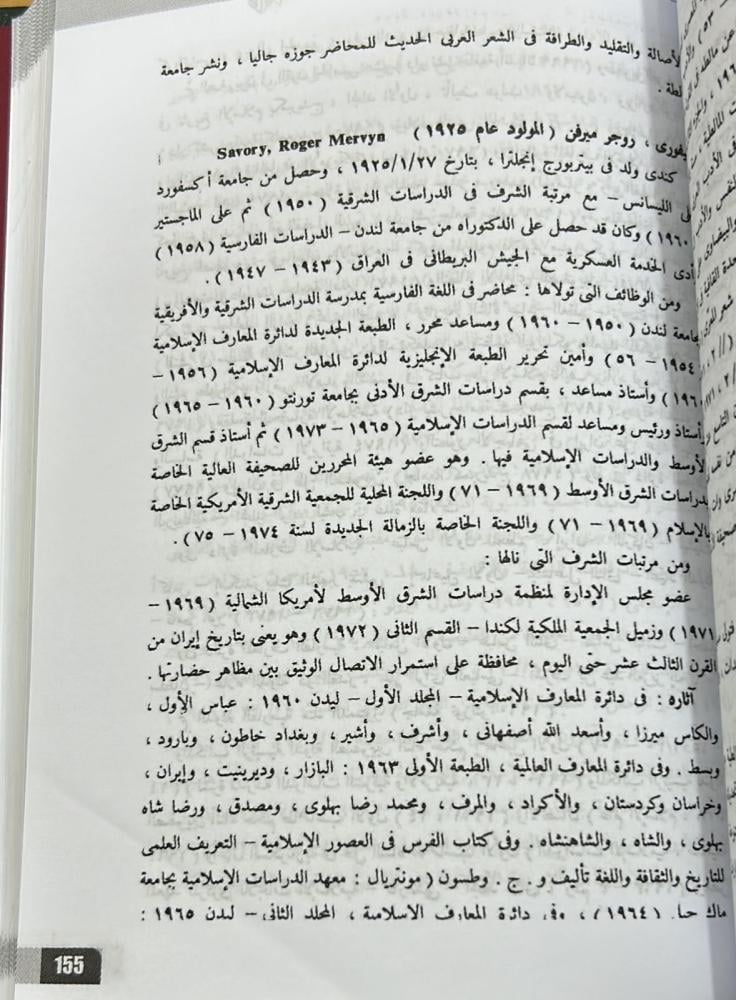 لأصالة والتقليد والطرافة فى الشعر العربى الحديث للمحاضر جوزه جاليا ، ونشر جامعة
لطة .
يفورى ، روجر ميرفن ( المولود عام ١٩٢٥ ) Savory, Roger Mervyn
كندى ولد فى بيتربورج إنجلترا ، بتاريخ ١٩٢٥/١/٢٧ ، وحصل من جامعة أكسفورد
الليسانس – مع مرتبة الشرف فى الدراسات الشرقية ( ١٩٥٠ ) ثم على الماجستير
١٩٦٠ ) وكان قد حصل على الدكتوراه من جامعة لندن – الدراسات الفارسية ( ١٩٥٨ )
أدى الخدمة العسكرية مع الجيش البريطانى فى العراق ( ١٩٤٣ – ١٩٤٧ ) .
ومن الوظائف التى تولاها : محاضر فى اللغة الفارسية بمدرسة الدراسات الشرقية والأفريقية
جامعة لندن ( ١٩٥٠ – ١٩٦٠ ) ومساعد محرر ، الطبعة الجديدة لدائرة المعارف الإسلامية
١٩٥٤ – ٥٦ ) وأمين تحرير الطبعة الإنجليزية لدائرة المعارف الإسلامية ( ١٩٥٦ –
١٩٦٠ ) وأستاذ مساعد ، بقسم دراسات الشرق الأدنى بجامعة تورنتو ( ١٩٦٠ – ١٩٦٥ )
أستاذ ورئيس ومساعد لقسم الدراسات الإسلامية ( ١٩٦٥ – ١٩٧٣ ) ثم أستاذ قسم الشرق
لأوسط والدراسات الإسلامية فيها . وهو عضو هيئة المحررين للصحيفة العالية الخاصة
بدراسات الشرق الأوسط ( ١٩٦٩ – ٧١ ) واللجنة المحلية للجمعية الشرقية الأمريكية الخاصة
بالإسلام ( ١٩٦٩ – ٧١ ) واللجنة الخاصة بالزمالة الجديدة لسنة ١٩٧٤ – ٧٥ ) .
ومن مرتبات الشرف التى نالها :
عضو مجلس الإدارة لمنظمة دراسات الشرق الأوسط لأمريكا الشمالية ( ١٩٦٩ –
١٩٧١ ) وزميل الجمعية الملكية لكندا – القسم الثانى ( ١٩٧٢ ) وهو يعنى بتاريخ إيران من
القرن الثالث عشر حتى اليوم ، محافظة على استمرار الاتصال الوثيق بين مظاهر حضارتها .
آثاره : فى دائرة المعارف الإسلامية – المجلد الأول – ليدن ١٩٦٠ : عباس الأول ،
والكاس ميرزا ، وأسعد الله أصفهانى ، وأشرف ، وأشير ، وبغداد خاطون ، وبارود ،
وبسط . وفى دائرة المعارف العالمية ، الطبعة الأولى ١٩٦٣ : البازار ، وديرينيت ، وإيران ،
وخراسان وكردستان ، والأكراد ، والمرف ، ومحمد رضا بهلوى ، ومصدق ، ورضا شاه
بهلوى ، والشاه ، والشاهنشاه . وفى كتاب الفرس فى العصور الإسلامية – التعريف العلمى
للتاريخ والثقافة واللغة تأليف و . ج . وطسون ( مونتريال : معهد الدراسات الإسلامية بجامعة
ماك جيل ( ١٩٦٤ ) ، وفى دائرة المعارف الاسلامية ، المجلد الثانى – ليدن ١٩٦٥ :
155